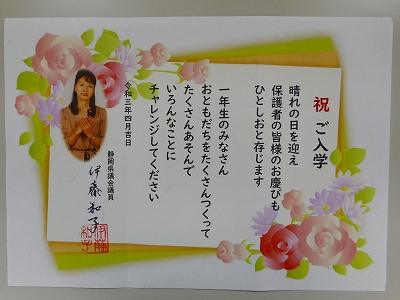 祝 ご入学
晴れの日を迎え
保護者の皆様のお慶びも
ひとしおと存じます
一年生のみなさん
おともだちをたくさんつくって
たくさんあそんで
いろんなことに
チャレンジしてください
令和三年四月吉日
静岡県議会議員
伊藤和子